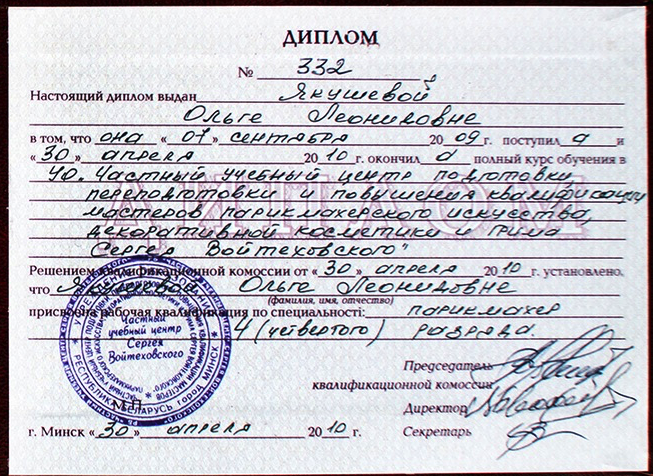 ДИПЛОМ
№ 332
Настоящий диплом выдан Якушевой
Ольге Леонидовне
в том, что она «07» сентября 2009 г. поступила и
«30» апреля 2010 г. окончила полный курс обучения в
УО. Частный учебный центр подготовки,
переподготовки и повышения квалификации
мастеров парикмахерского искусства,
декоративной косметики и грима
Сергея Войтеховского"
Решением квалификационной комоссии от «30» апреля 2010 г. установлено,
что Якушевой Ольге Леонидовне
(фамилия, имя, отчество)
присвоена рабочая квалификация по специальности: парикмахер
4 (четвертого) разряда.
Частный
учебный центр
Сергея
Войтеховского
РЕСПУБЛИКА БЕЛАРУСЬ город МИНСК
Председатель
квалификационной комоссии
Директор
М.П.
Секретарь
г. Минск «30» апреля 2010 г.
ДИПЛОМ